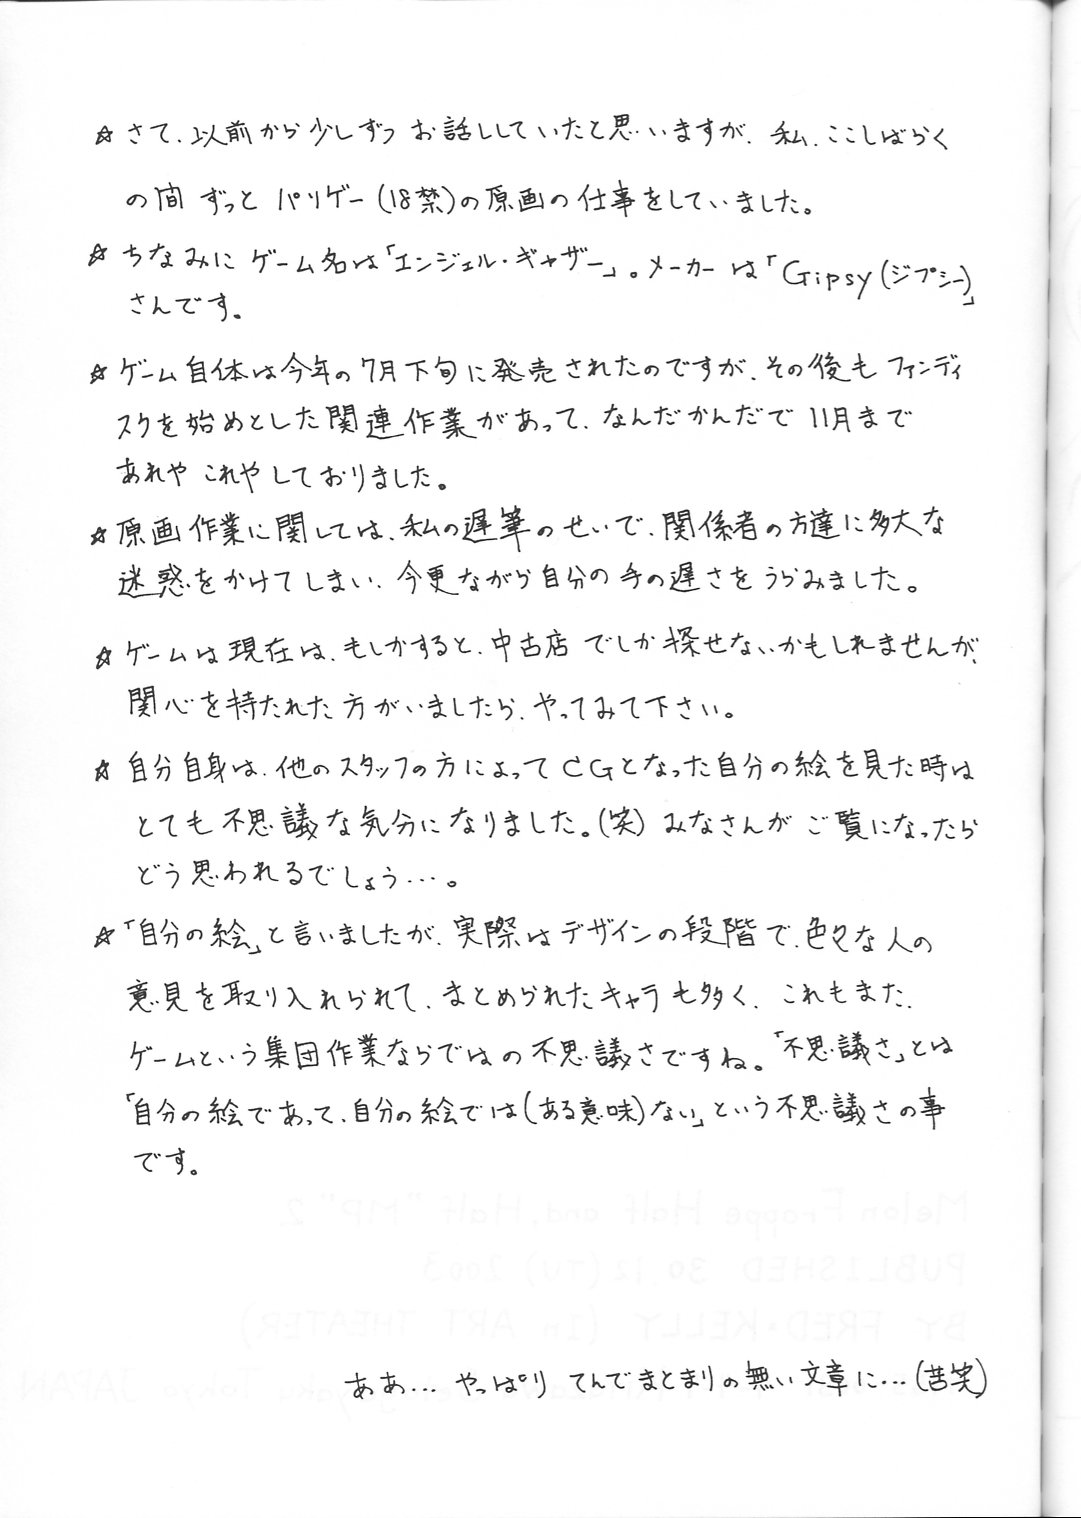 ☆ さて、以前から少しずつ お話ししていたと思いますが、私、ここしばらく
の間 ずっと パソゲー(18禁)の原画の仕事をしていました。
☆ ちなみに ゲーム名は「エンジェル・ギャザー」。メーカーは「Gipsy(ジプシー)」
さんです。
☆ ゲーム自体は今年の7月下旬に発売されたのですが、その後も ファンディ
スクを始めとした関連作業があって、なんだかんだで 11月まで
あれや これや しておりました。
☆ 原画作業に関しては、私の遅筆のせいで、関係者の方達に多大な
迷惑をかけてしまい、今更ながら自分の手の遅さをうらみました。
☆ ゲームは現在は、もしかすると、中古店 でしか探せないかもしれませんが、
関心を持たれた方がいましたら、やってみて下さい。
☆ 自分自身は、他のスタッフの方によってCGとなった自分の絵を見た時は
とても不思議な気分になりました。(笑) みなさんが ご覧になったら
どう思われるでしょう…。
☆「自分の絵」と言いましたが、実際はデザインの段階で、色々な人の
意見を取り入れられて、まとめられたキャラも多く、これもまた、
ゲームという集団作業ならではの不思議さですね。「不思議さ」とは
「自分の絵であって、自分の絵では(ある意味)ない」という不思議さの事
です。
Melon Frappe Half and, Half "MP" 2.
PUBLISHED 30.12 (TU) 2003
BY FRED・KELLY (In ART THEATER)
ああ… やっぱり てんでまとまりの無い文章に…(苦笑)